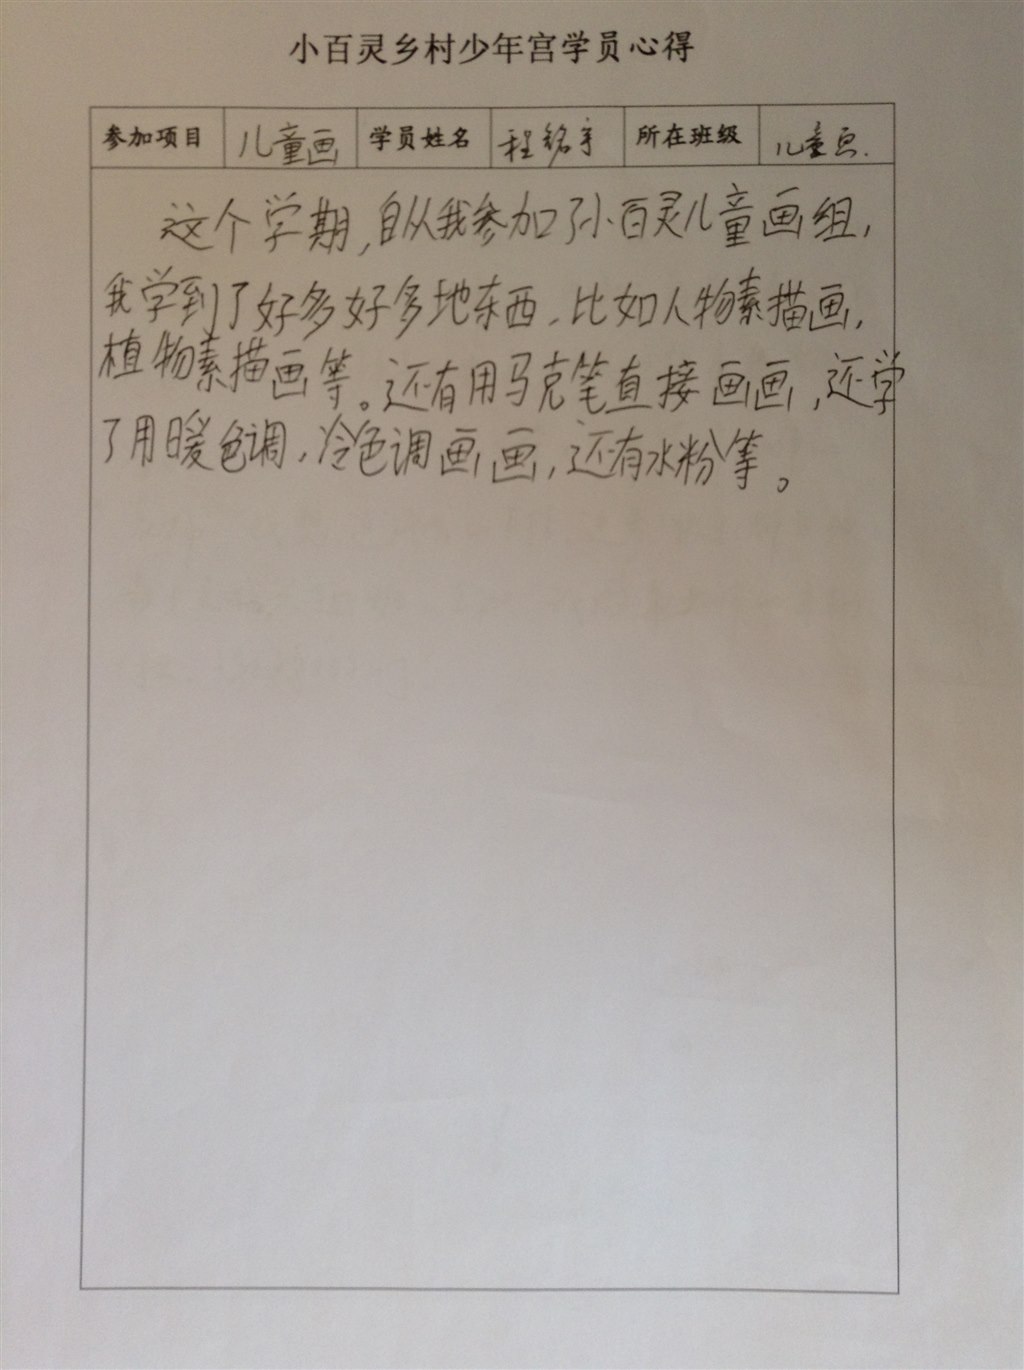 小百灵乡村少年宫学员心得
参加项目 儿童画 学员姓名 程铭宇 所在班级 儿童画.
这个学期,自从我参加了小百灵儿童画组,
我学到了好多好多地东西,比如人物素描画,
植物素描画等。还有用马克笔直接画画,还学
了用暖色调,冷色调画画,还有水粉等。